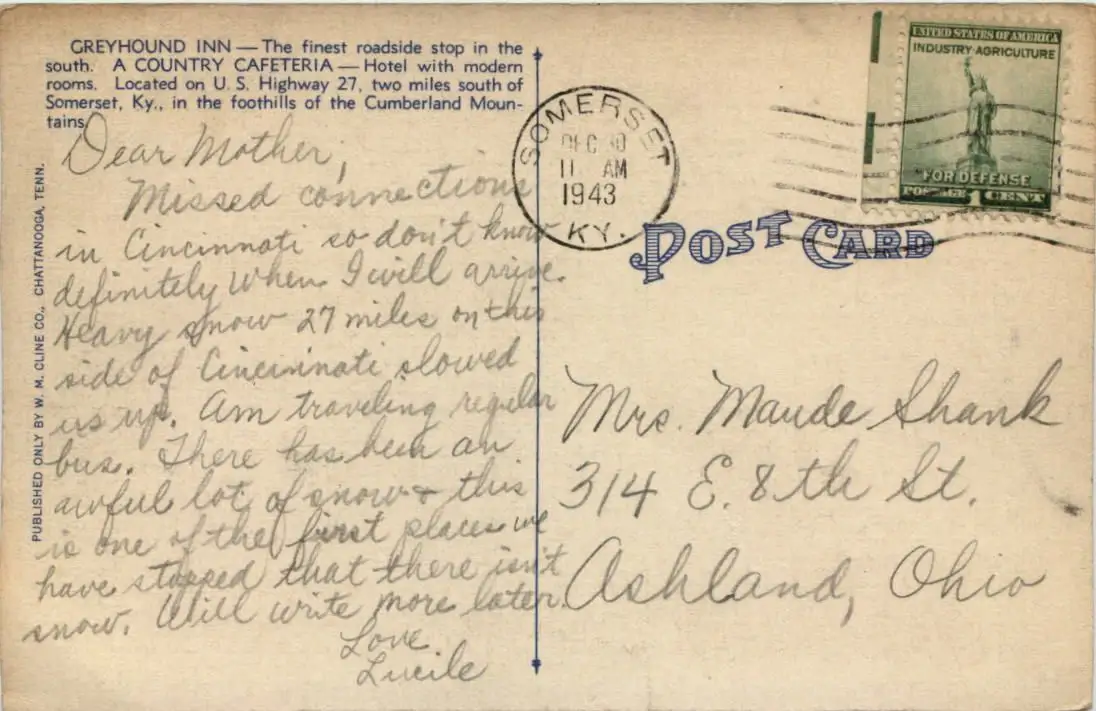 GREYHOUND INN — The finest roadside stop in the
south. A COUNTRY CAFETERIA — Hotel with modern
rooms. Located on U. S. Highway 27, two miles south of
Somerset, Ky., in the foothills of the Cumberland Moun-
tains.
Dear Mother,
Missed connections
in Cincinnati so don't know
definitely when I will arrive.
Heavy snow 27 miles on this
side of Cincinnati slowed
us up. Am traveling regular
bus. There has been an
awful lot of snow & this
is one of the first places we
have stopped that there isn't
snow. Will write more later.
Love
Lucile
PUBLISHED ONLY BY W. M. CLINE CO., CHATTANOOGA, TENN.
SOMERSET
DEC 30
11 AM
1943
KY.
UNITED STATES OF AMERICA
INDUSTRY AGRICULTURE
FOR DEFENSE
POSTAGE 1 CENT
POST CARD
Mrs. Maude Shank
314 E. 8th St.
Ashland, Ohio